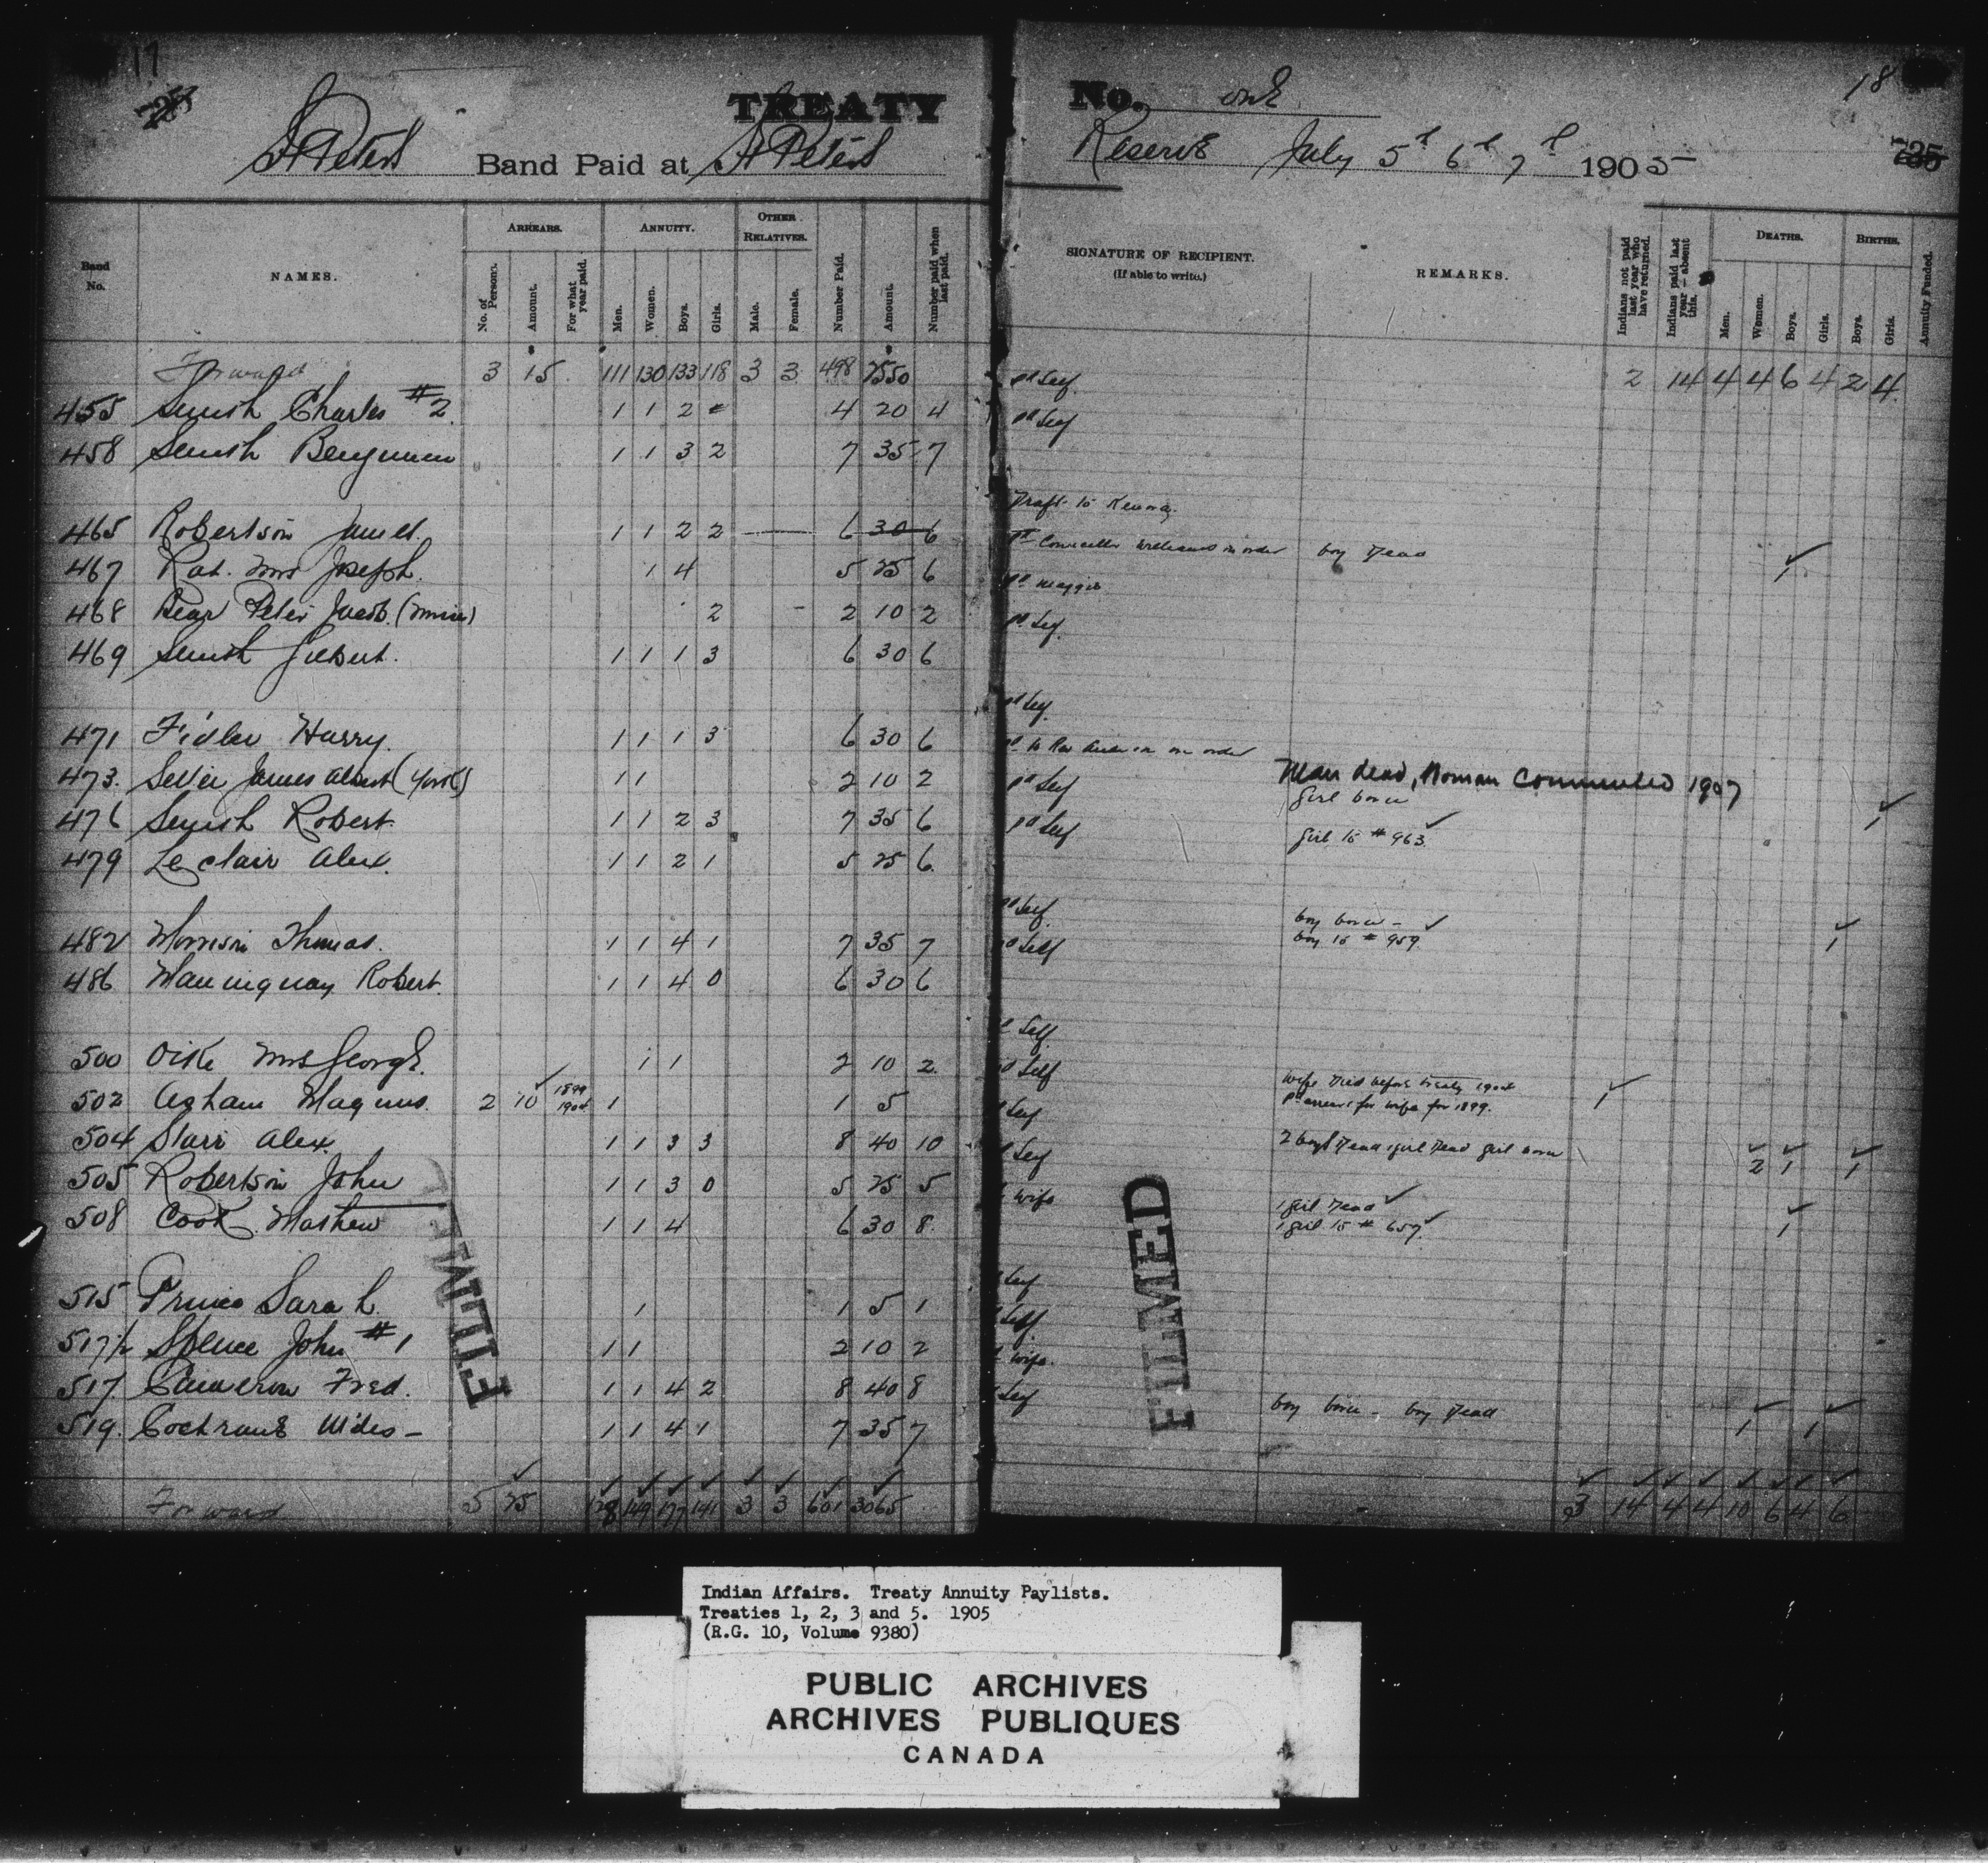 17
TREATY
St Peters Band Paid at St Peters
Band No.
NAMES.
ARREARS.
No. of Persons.
Amount.
For what year paid.
ANNUITY.
Men.
Women.
Boys.
Girls.
OTHER RELATIVES.
Male.
Female.
Number Paid.
Amount.
Number paid when last paid.
Forward 3 15 111 130 133 118 3 3 498 2550
455 Smith Charles #2. 1 1 2 4 20 4
458 Smith Benjamin 1 1 3 2 7 35 7
465 Robertson James. 1 1 2 2 6 30 6
467 Rat. Mrs Joseph. 1 4 5 25 6
468 Bear Peter Jacob. (minor) 2 2 10 2
469 Smith Gilbert. 1 1 1 3 6 30 6
471 Fidler Harry. 1 1 1 3 6 30 6
473. James Albert (York) 1 1 2 10 2
476 Smith Robert. 1 1 2 3 7 35 6
479 Leclair Alex. 1 1 2 1 5 25 6
482 Morrison Thomas. 1 1 4 1 7 35 7
486 Maningway Robert. 1 1 4 0 6 30 6
500 Oike Mrs George. 1 1 2 10 2.
502 Asham Magnus. 2 10 1899 1904 1 1 5
504 Starr Alex. 1 1 3 3 8 40 10
505 Robertson John 1 1 3 0 5 25 5
508 Cook. Mathew 1 1 4 6 30 8.
515 Prince Sarah. 1 1 5 1
517½ Spence John #1 1 1 2 10 2
517 Cameron Fred. 1 1 4 2 8 40 8
519. Cochrane Wides - 1 1 4 1 7 35 7
Forward 5 25 128 149 177 141 3 3 601 3065
FILMED
18
No. one
Reserve July 5th 6th 7th 1905
735
SIGNATURE OF RECIPIENT.
(If able to write.)
REMARKS.
Indians not paid last year who have returned.
Indians paid last year – absent this.
DEATHS.
Men.
Women.
Boys.
Girls.
BIRTHS.
Boys.
Girls.
Annuity Funded.
pd Self. 2 14 4 4 6 4 2 4
pd Self
Draft to Kenora.
pd Councillor Williams on order boy dead 1
pd Maggie
pd Self.
pd Self.
on order
pd Self Man dead, Woman Commuted 1907
girl born 1
pd Self girl to # 963.
pd Self. boy born - 1
pd Self boy to # 959.
Self.
Self
wife died before treaty 1904 1
Self pd arrears for wife for 1899.
Self 2 boys dead 1 girl dead girl born 2 1 1
wife 1 girl dead
1 girl to # 657. 1
Self
Self.
wife.
Self boy born - boy dead 1 1
3 14 4 4 10 6 4 6
FILMED
Indian Affairs. Treaty Annuity Paylists.
Treaties 1, 2, 3 and 5. 1905
(R.G. 10, Volume 9380)
PUBLIC ARCHIVES
ARCHIVES PUBLIQUES
CANADA